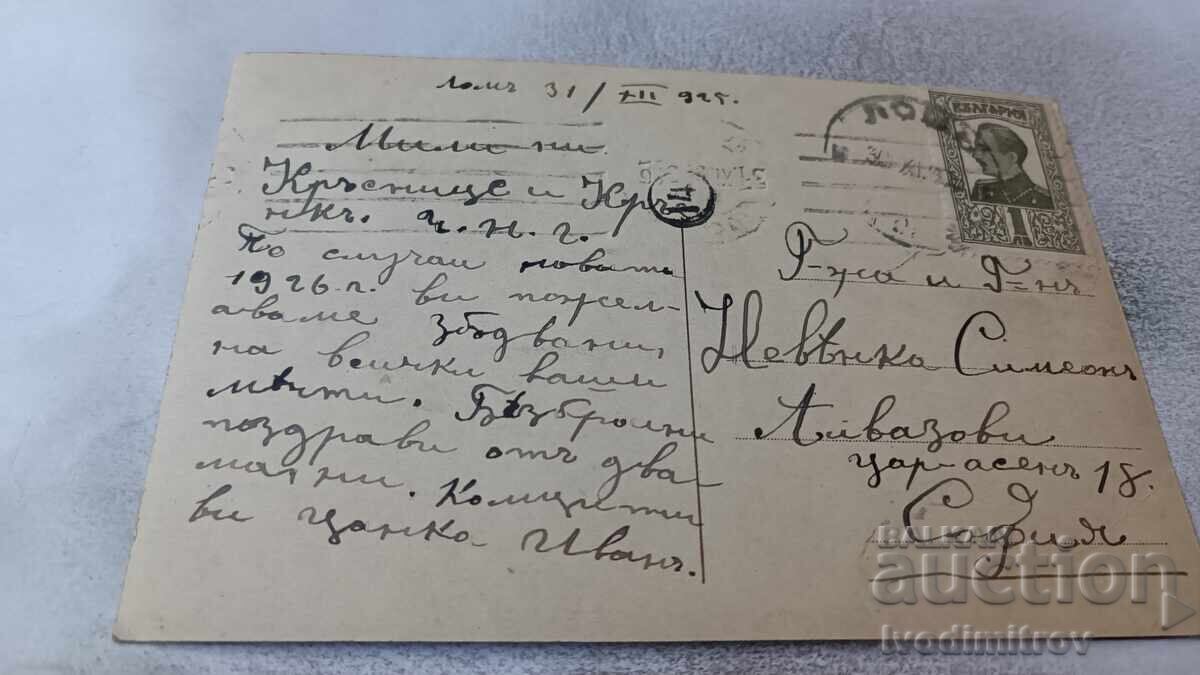 Ломъ 31/XII 925.
Мили ни
Кръстнице и Кръ-
нкъ. Ч. Н. Г.
По случаи новата
1926 г. ви пожел-
аваме збъдвания
на всички ваши
мечти. Безбройни
поздрави отъ два-
ма ни. Комшети
ви Цанка Иванъ.
БЪЛГАРИЯ
ЛОМ
1
Г-жа и Г-нъ
Невѣнка Симеонъ
Айвазови
цар-асенъ 18.
София
BALKAN
auction
ivodimitrov